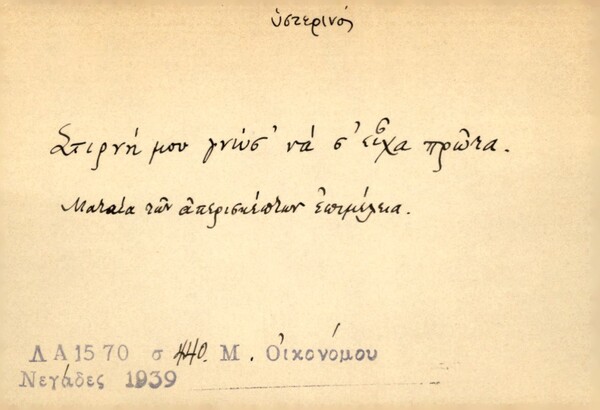 ὑστερινός
Στιρνή μου γνώσ' νά σ' εἶχα πρῶτα.
Ματαία τῶν ἀπερισκέπτων ἐπιμέλεια.
ΛΑ 1570 σ 440. Μ. Οἰκονόμου
Νεγάδες 1939